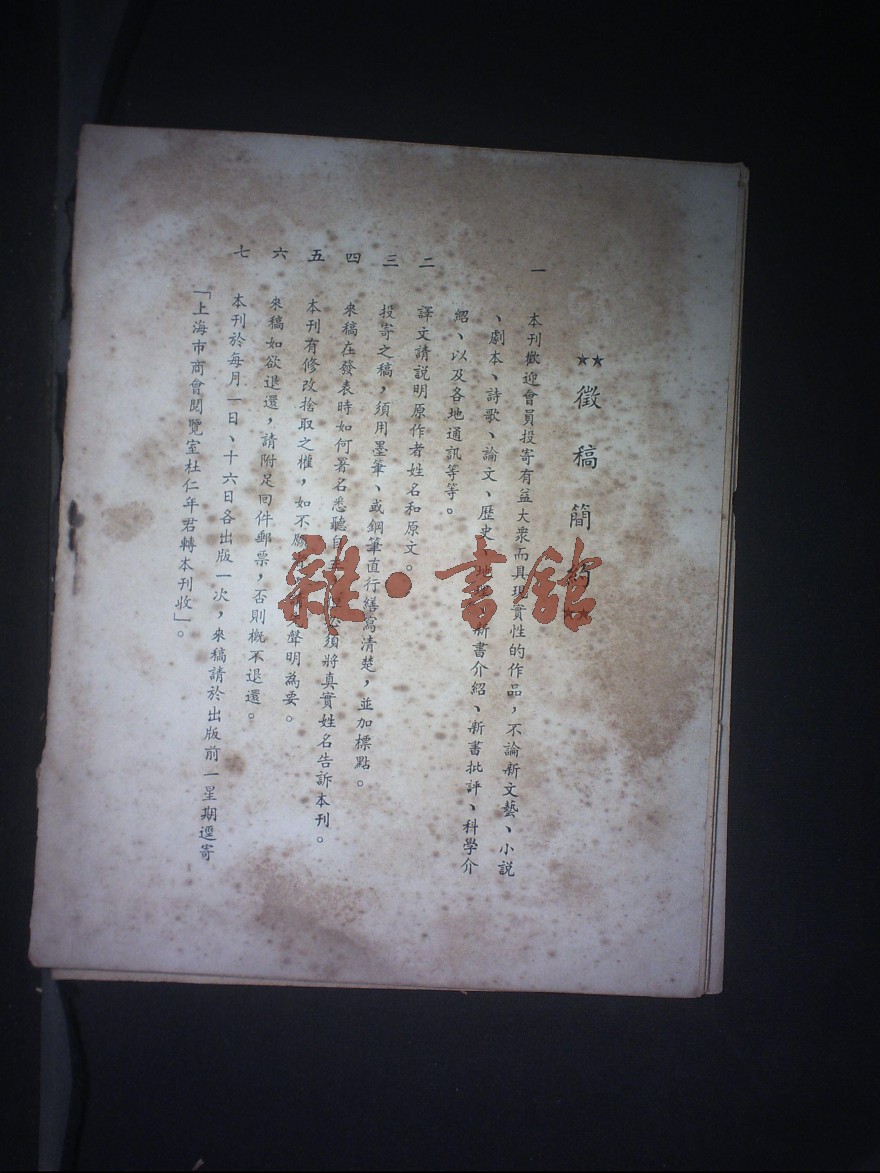 ★★徵稿簡約★★
一 本刊歡迎會員投寄有益大衆而具現實性的作品，不論新文藝、小説
、劇本、詩歌、論文、歷史、地理、新書介紹、新書批評、科學介
紹、以及各地通訊等等。
二 譯文請説明原作者姓名和原文。
三 投寄之稿，須用墨筆、或鋼筆直行繕寫清楚，並加標點。
四 來稿在發表時如何署名悉聽自 須將真實姓名告訴本刊。
五 本刊有修改捨取之權，如不願 聲明為要。
六 來稿如欲退還，請附足回件郵票，否則概不退還。
七 本刊於每月一日、十六日各出版一次，來稿請於出版前一星期逕寄
「上海市商會閱覽室杜仁年君轉本刊收」。
雜·書館